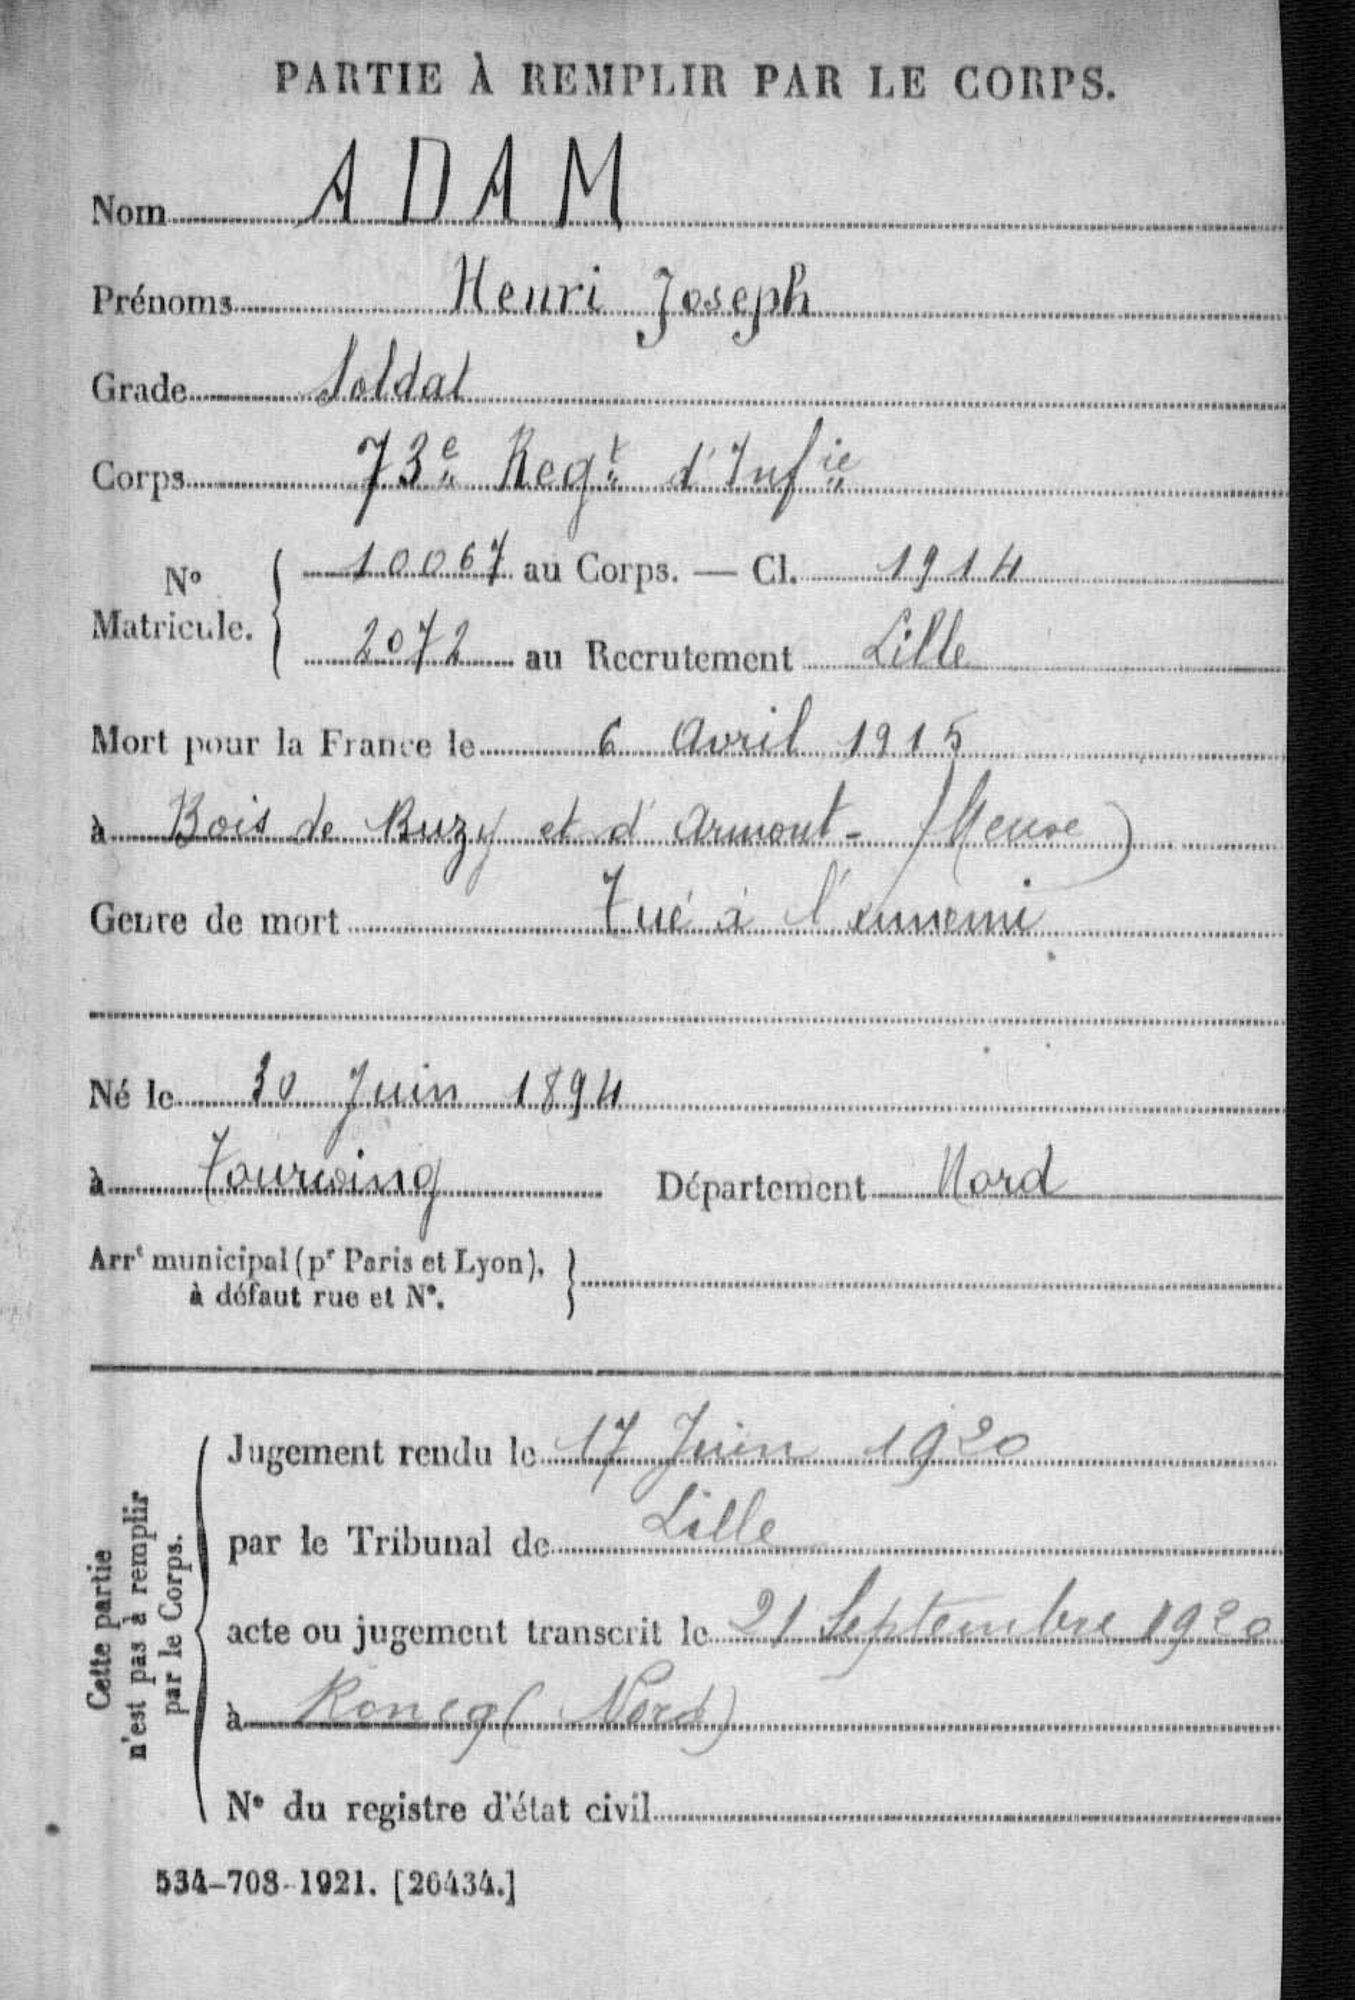 PARTIE À REMPLIR PAR LE CORPS.
Nom ADAM
Prénoms Henri Joseph
Grade Soldat
Corps 73e Regt d'Infie
No Matricule. { 10067 au Corps. — Cl. 1914
2072 au Recrutement Lille
Mort pour la France le 6 Avril 1915
à Bois de Buzy et d'Armont - (Meuse)
Genre de mort Tué à l'ennemi
Né le 30 Juin 1894
à Tourcoing Département Nord
Arrt municipal (pr Paris et Lyon), à défaut rue et No. }
Cette partie n'est pas à remplir par le Corps. {
Jugement rendu le 17 Juin 1920
par le Tribunal de Lille
acte ou jugement transcrit le 21 Septembre 1920
à Roncq (Nord)
No du registre d'état civil
534-708-1921. [26434.]